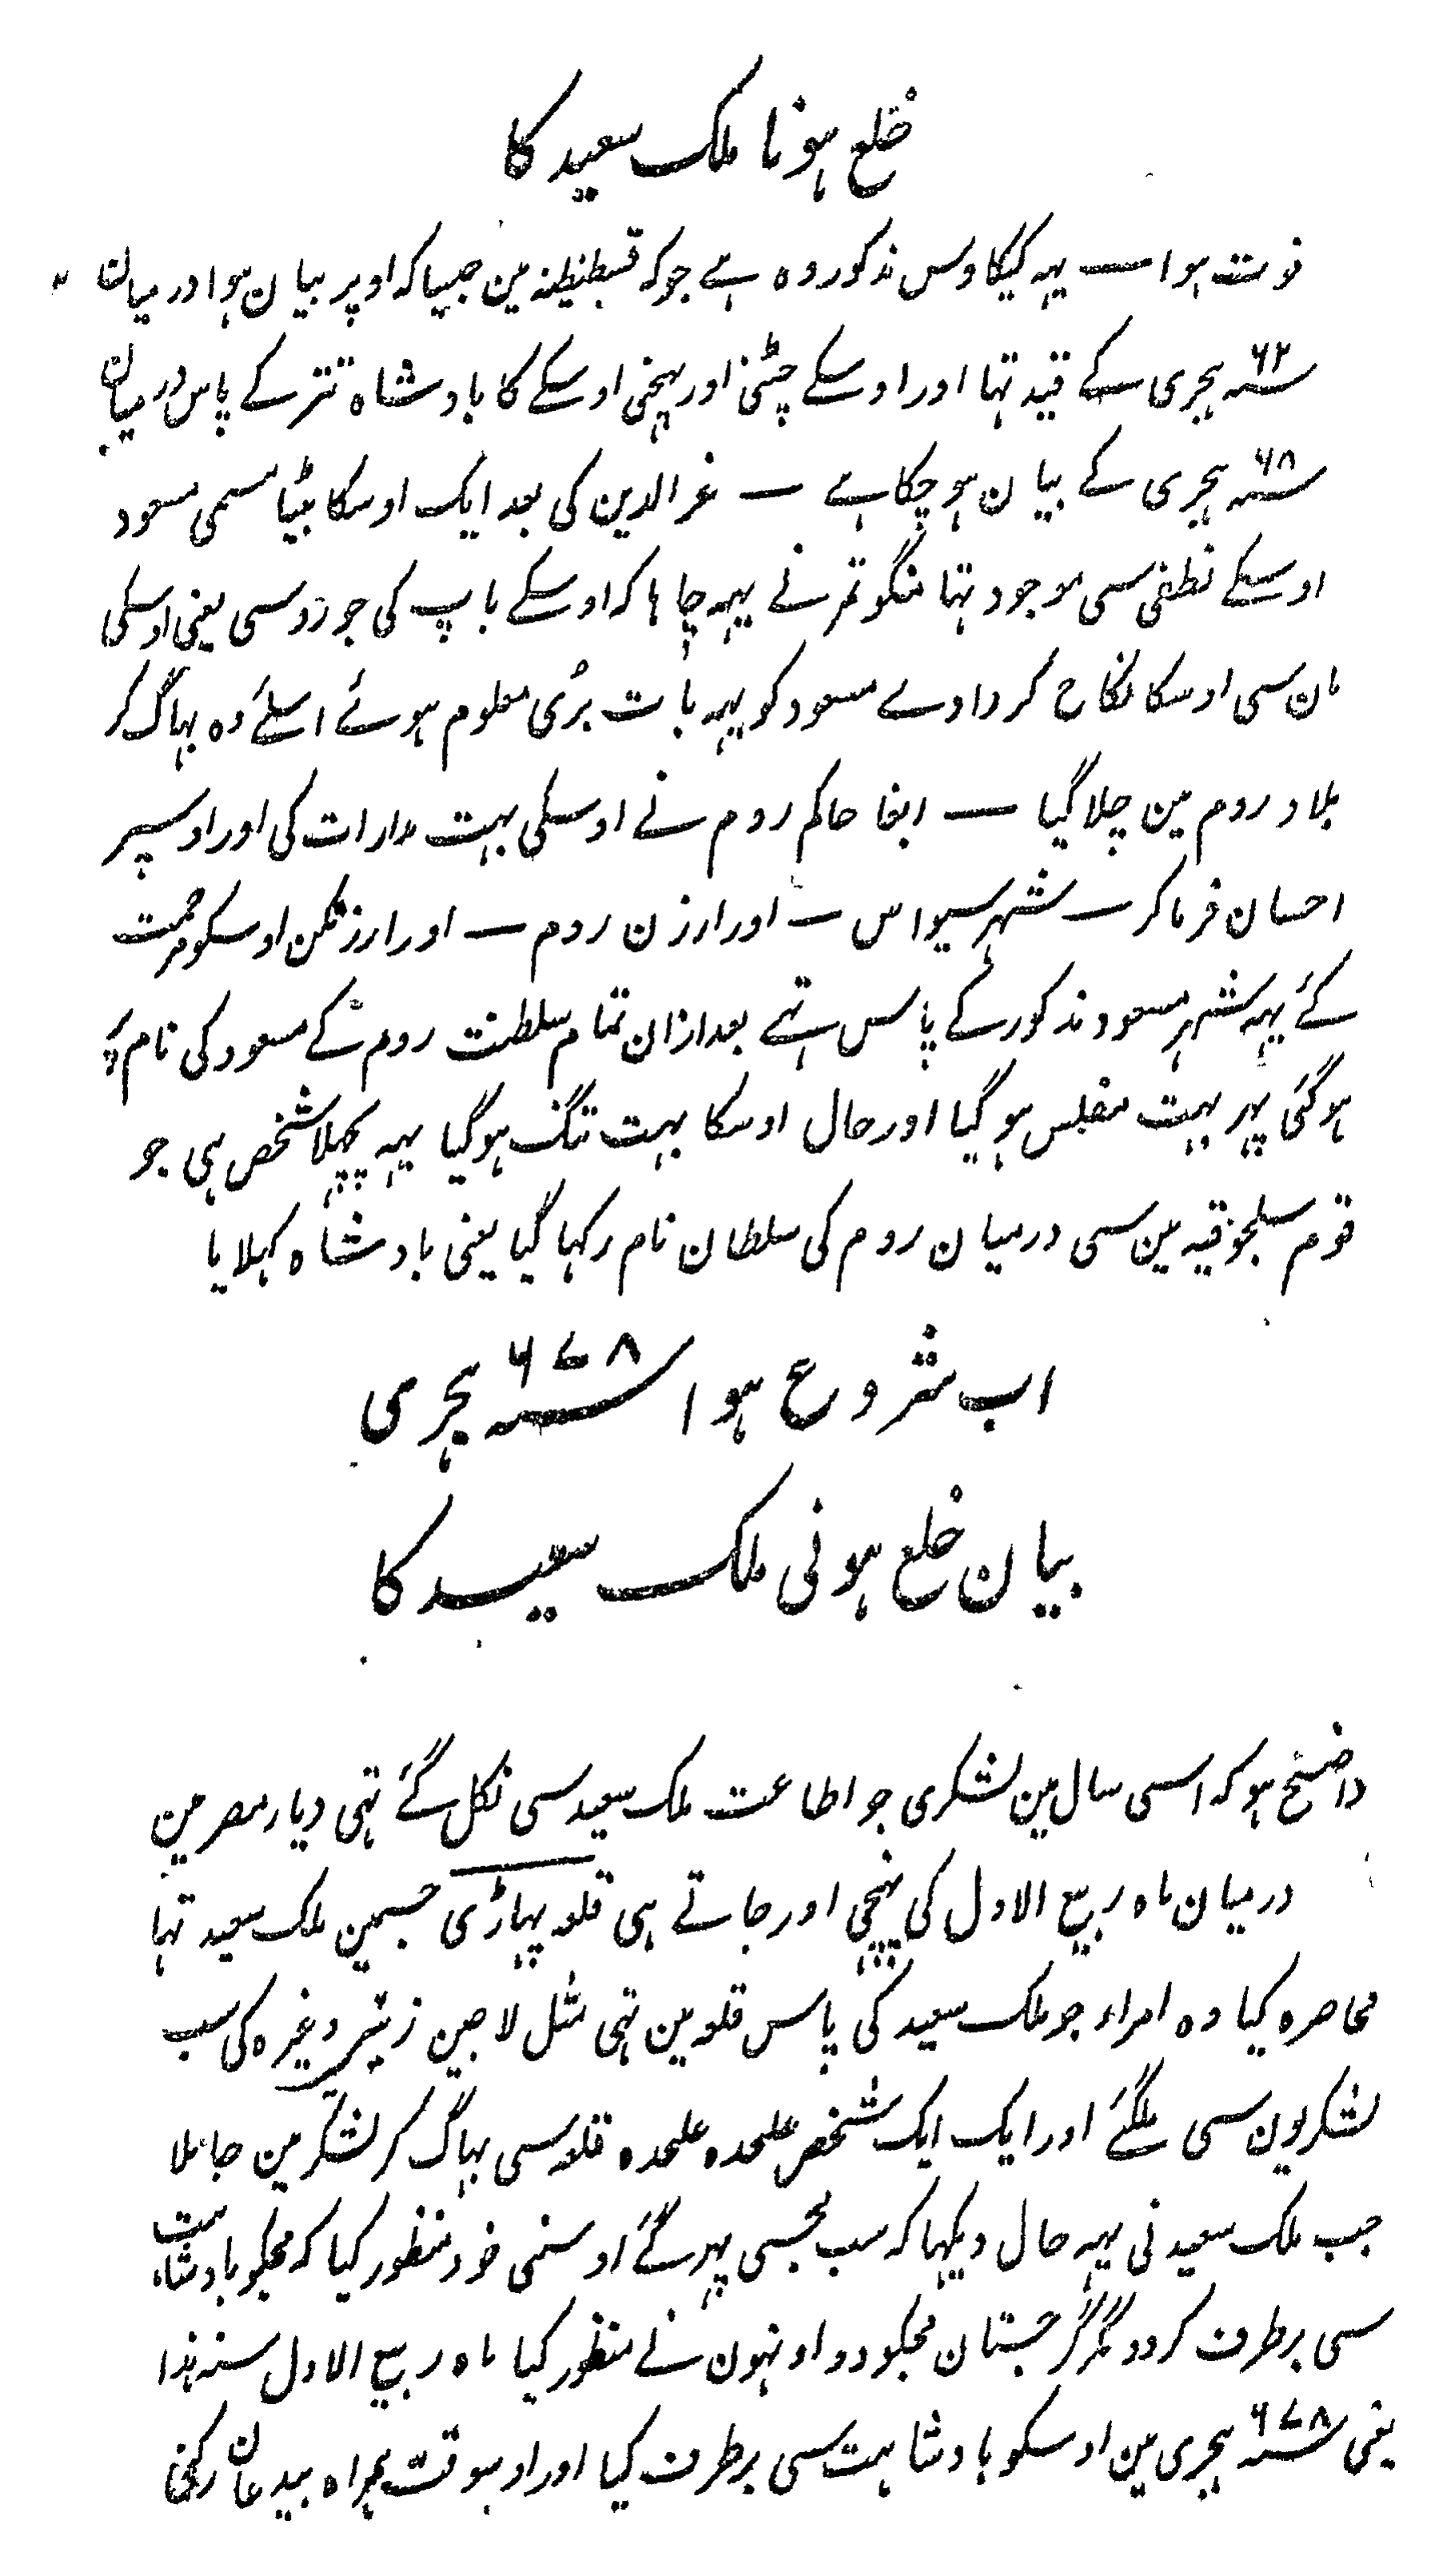 خلع ہونا ملک سعید کا
فوت ہوا — یہہ کیکاوس مذکور وہ ہے جو کہ قسطنطنیہ مین جیسا کہ اوپر بیان ہوا درمیان
سنہ ۶۶۲ ہجری کے قید تہا اور اوسکے چٹنی اور پہنچنی اوسکے کا بادشاہ تتر کے پاس درمیان
سنہ ۶۶۸ ہجری کے بیان ہو چکا ہے — عز الدین کی بعد ایک اوسکا بیٹا مسمی مسعود
اوسکے نطفی سی موجود تہا منگوتمر نے یہہ چاہا کہ اوسکے باپ کی جورو سی یعنی اوسکی
مان سی اوسکا نکاح کر دا دے مسعود کو یہہ بات بُری معلوم ہوئے اسلئے وہ بہاگ کر
بلاد روم مین چلا گیا — ابغا حاکم روم نے اوسکی بہت مدارات کی اور اوسپر
احسان فرماکر — شہر سیواس — اور ارزن روم — اور ارزنکن اوسکو مرحمت
کئے یہہ شہر مسعود مذکور کے پاس تہے بعد ازان تمام سلطنت روم کے مسعود کی نام پر
ہو گئی پہر بہت مفلس ہو گیا اور حال اوسکا بہت تنگ ہو گیا یہہ پچہلا شخص ہی جو
قوم سلجوقیہ مین سی درمیان روم کی سلطان نام رکہا گیا یعنی بادشاہ کہلایا
اب شروع ہوا سنہ ۶۷۸ ہجری
بیان خلع ہونی ملک سعید کا
واضح ہو کہ اسی سال مین لشکری جو اطاعت ملک سعید سی نکل گئے تہی دیار مصر مین
درمیان ماہ ربیع الاول کی پہنچی اور جاتے ہی قلعہ پہاڑی جسمین ملک سعید تہا
محاصرہ کیا وہ امراء جو ملک سعید کی پاس قلعہ مین تہی مثل لاجین زینی وغیرہ کی سب
لشکریون سی ملگئے اور ایک ایک شخص علحدہ علحدہ قلعہ سی بہاگ کر لشکر مین جا ملا
جب ملک سعید نی یہہ حال دیکہا کہ سب مجسی پہر گئے اوسنی خود منظور کیا کہ مجکو بادشاہت
سی برطرف کردو مگر گرجستان مجکو دو اونہون نے منظور کیا ماہ ربیع الاول سنہ ہذا
یعنی سنہ ۶۷۸ ہجری مین اوسکو بادشاہت سی برطرف کیا اور اوسوقت ہمراہ بیدغان رکنی